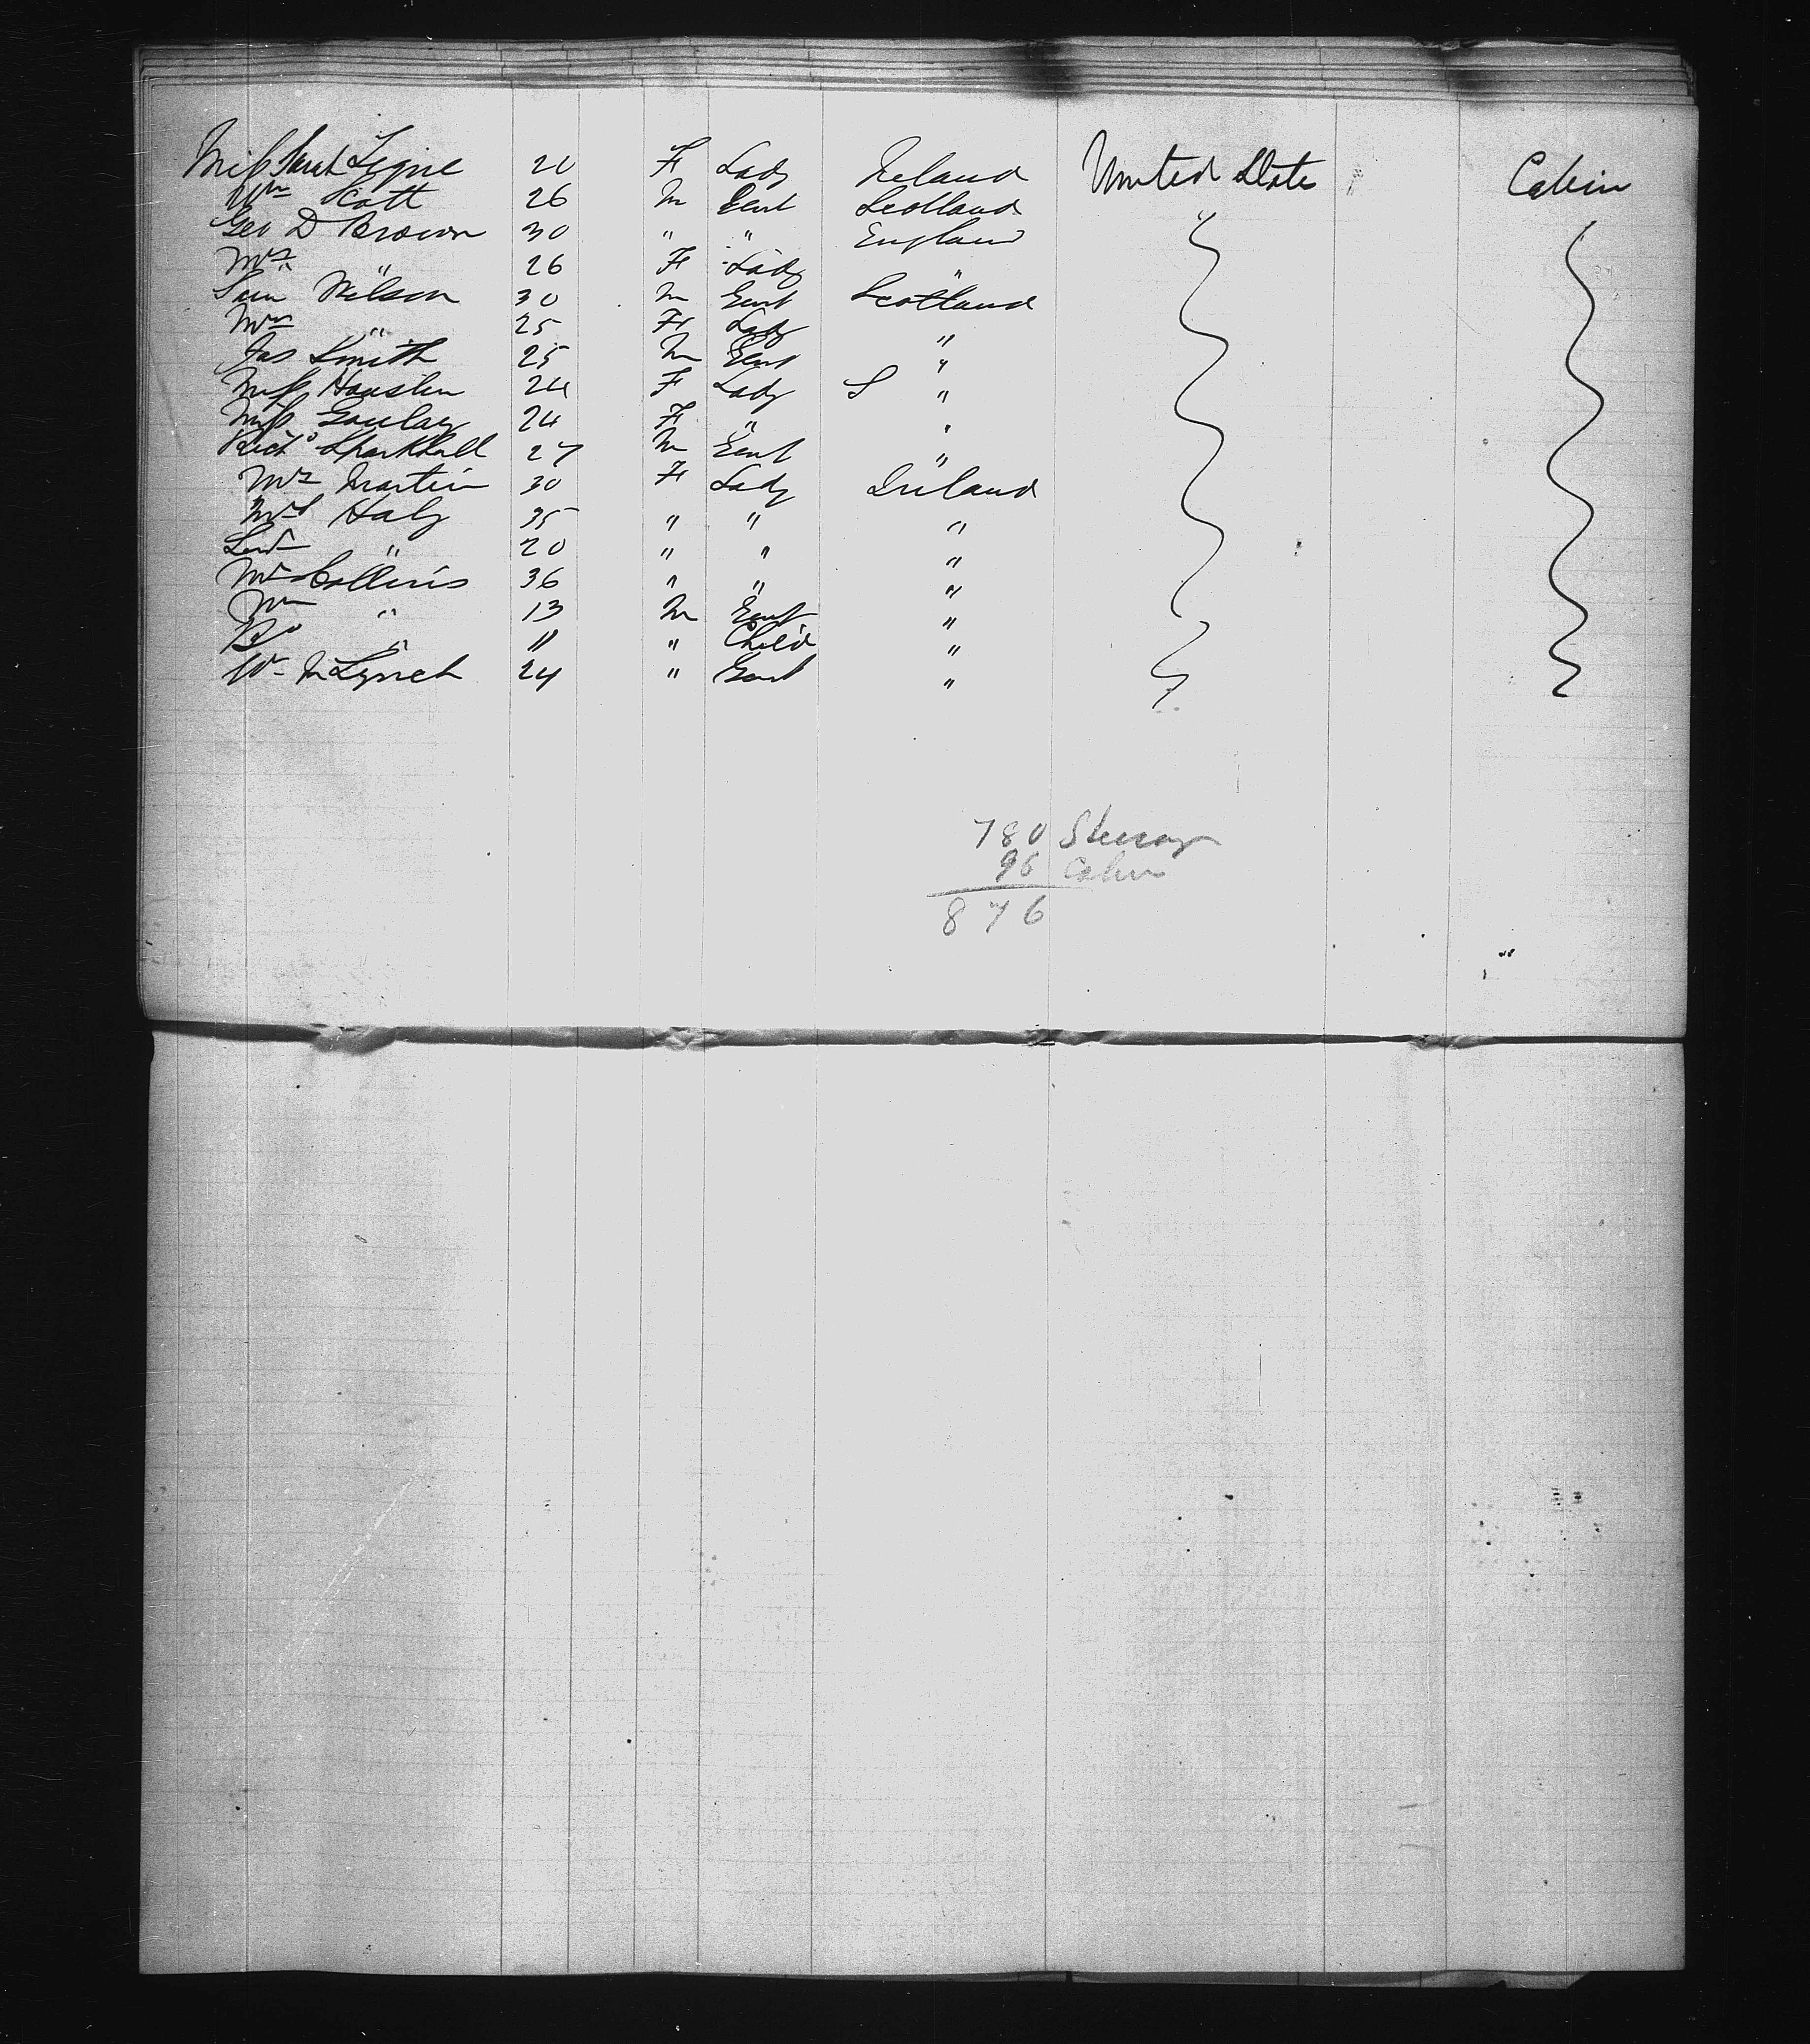 Miss Sarah 20 F Lady Ireland United States Cabin
Wm Scott 26 M Gent Scotland "
Geo D Brown 30 " " England
Mrs " 26 F Lady "
Sam Wilson 30 M Gent Scotland
Mrs " 25 F Lady "
Jas Smith 25 M Gent "
Miss 24 F Lady S "
Miss 24 F " "
Richd 27 M Gent "
Mrs Martin 30 F Lady Ireland
Mrs Haly 35 " " "
" 20 " " "
Mrs Collins 36 " " "
Wm " 13 M Gent "
" 11 " Child "
Wm Lynch 24 " Gent "
780 Steerage
96 Cabin
876